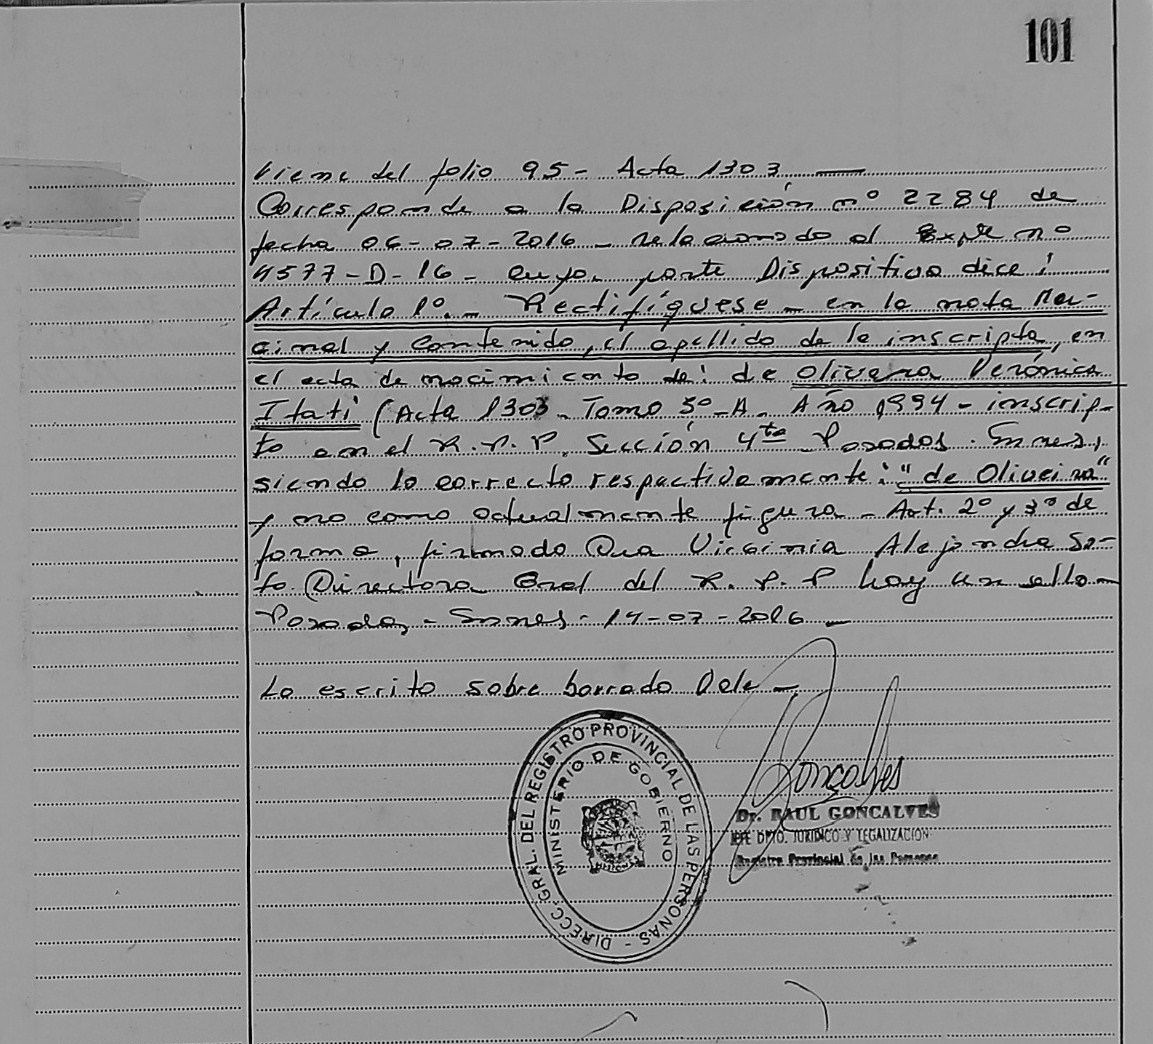 101
Viene del folio 95- Acta 1303 —
Corresponde a la Disposición nº 2284 de
fecha 06-07-2016 - relacionado al Expte nº
4577-D-16- cuya parte Dispositiva dice:
Artículo 1º.- Rectifíquese - en la nota Mar-
ginal y contenido, el apellido de la inscripta, en
el acta de nacimiento de: de Olivera Verónica
Itatí (Acta 1303 - Tomo 5º-A- Año 1994 - inscrip-
to en el R.P.P. Sección 4ta Posadas. Smnes,
siendo lo correcto respectivamente: "de Oliveira"
y no como actualmente figura - Art. 2º y 3º de
forma, firmado Dra Virginia Alejandra So-
to Directora Gral del R.P.P hay un sello -
Posadas, - Smnes - 14-07-2016 -
Lo escrito sobre borrado Vale -
DIRECC. GRAL. DEL REGISTRO PROVINCIAL DE LAS PERSONAS -
MINISTERIO DE GOBIERNO
Gonçalves
Dr. RAUL GONCALVES
JEFE DPTO. JURIDICO Y LEGALIZACION
Registro Provincial de las Personas